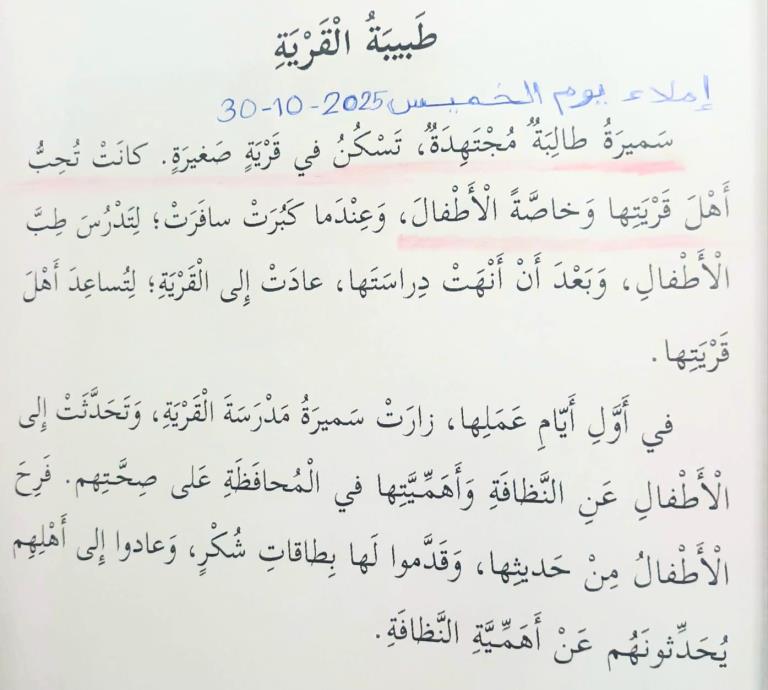 طَبيبَةُ الْقَرْيَةِ
إملاء يوم الخميس 30-10-2025
سَميرَةُ طالِبَةٌ مُجْتَهِدَةٌ، تَسْكُنُ في قَرْيَةٍ صَغيرَةٍ. كانَتْ تُحِبُّ
أَهْلَ قَرْيَتِها وَخاصَّةً الْأَطْفالَ، وَعِنْدَما كَبُرَتْ سافَرَتْ؛ لِتَدْرُسَ طِبَّ
الْأَطْفالِ، وَبَعْدَ أَنْ أَنْهَتْ دِراسَتَها، عادَتْ إِلى الْقَرْيَةِ؛ لِتُساعِدَ أَهْلَ
قَرْيَتِها.
في أَوَّلِ أَيّامِ عَمَلِها، زارَتْ سَميرَةُ مَدْرَسَةَ الْقَرْيَةِ، وَتَحَدَّثَتْ إِلى
الْأَطْفالِ عَنِ النَّظافَةِ وَأَهَمِّيَّتِها في الْمُحافَظَةِ عَلى صِحَّتِهِم. فَرِحَ
الْأَطْفالُ مِنْ حَديثِها، وَقَدَّموا لَها بِطاقاتِ شُكْرٍ، وَعادوا إِلى أَهْلِهِم
يُحَدِّثونَهُم عَنْ أَهَمِّيَّةِ النَّظافَةِ.